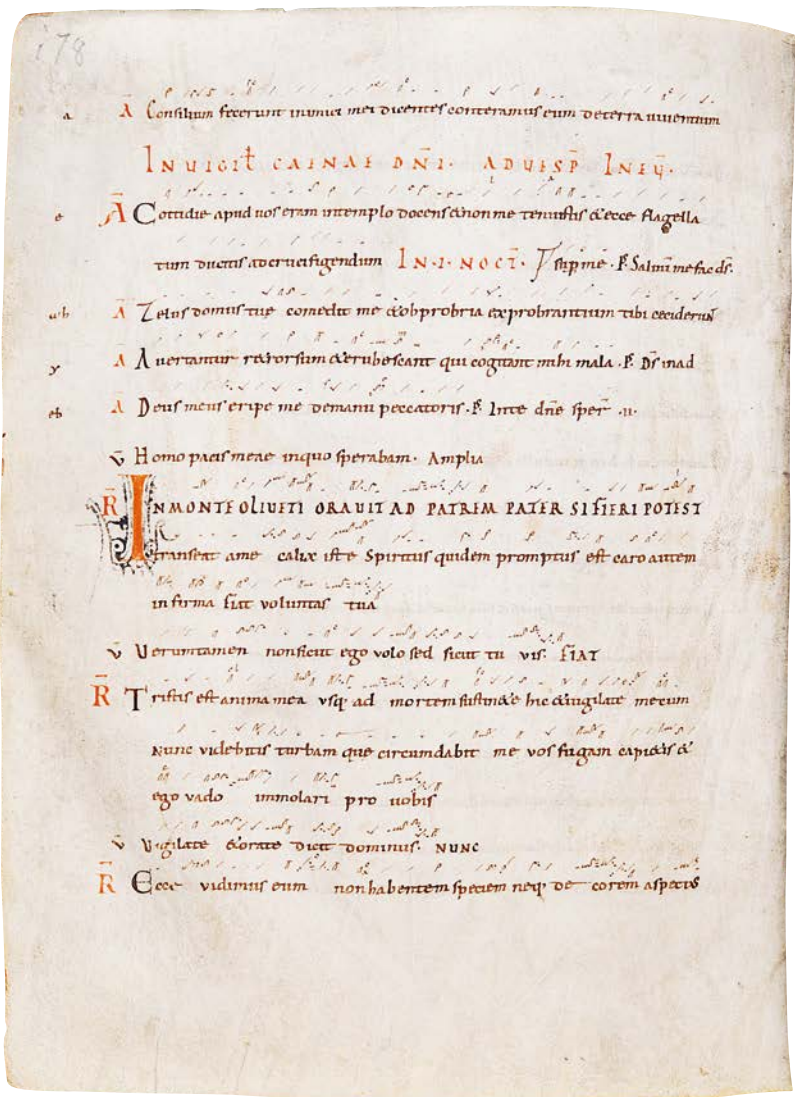 178
a Ā Consilium fecerunt inimici mei dicentes conteramus eum deterra uiuentium
IN UIGIƗ CAENAE DN̄I· AD UESP̄ IN EŪ·
e Ā Cottidie apud uos eram intemplo docens & non me tenuistis & ecce flagella
tum ducitis ad crucifigendum IN·I·NOCT̄· sup me · P̄ Saluū me fac ds̄·
Ā Zelus domus tuę comedit me & obprobria exprobrantium tibi ceciderun̄t
y Ā Auertantur retrorsum & erubescant qui cogitant mihi mala · P̄ Ds̄ inad
Ā Deus meus eripe me demanu peccatoris · P̄ Inte dn̄e sper̄ ·u·
V̄ Homo pacis meae inquo sperabam· Amplia
R̄ IN MONTE OLIUETI ORAUIT AD PATREM PATER SI FIERI POTEST
transeat ame calix iste Spiritus quidem promptus est caro autem
infirma fiat voluntas tua
V̄ Ueruntamen nonsicut ego volo sed sicut tu vis· FIAT
R̄ Tristis est anima mea vsq· ad mortem sustin&e hic & uigilate mecum
Nunc videbitis turbam que circumdabit me vos fugam capi&is &
ego vado immolari pro uobis
V̄ Uigilate & orate dicit dominus· NUNC
R̄ Ecce vidimus eum non habentem speciem neq· decorem aspectus